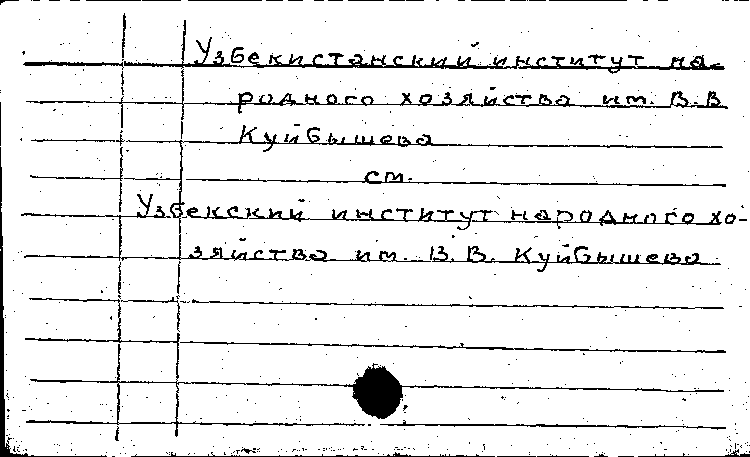 Узбекистанский институт на-
родного хозяйства им. В.В
Куйбышева
см.
Узбекский институт народного хо-
зяйства им. В.В. Куйбышева